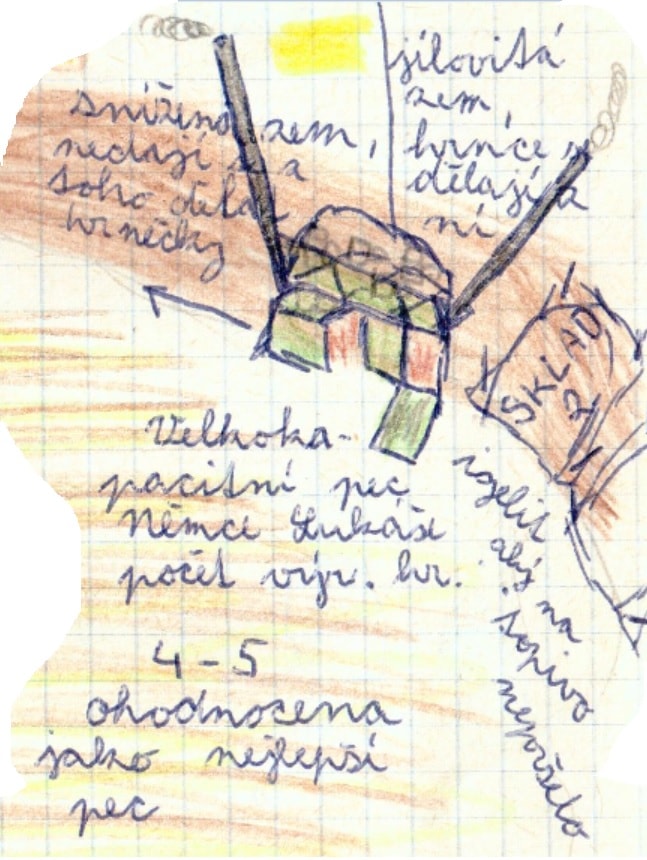 snížená zem,
nedají se z
toho dělat
hrnečky
jílovitá
zem,
hrnce
dělají z
ní
SKLAD
Velkoka-
pacitní pec
Němce Lukáše
počet výr. hr.
4-5
ohodnocena
jako nejlepší
pec
igelit
aby na
topivo
nepršelo